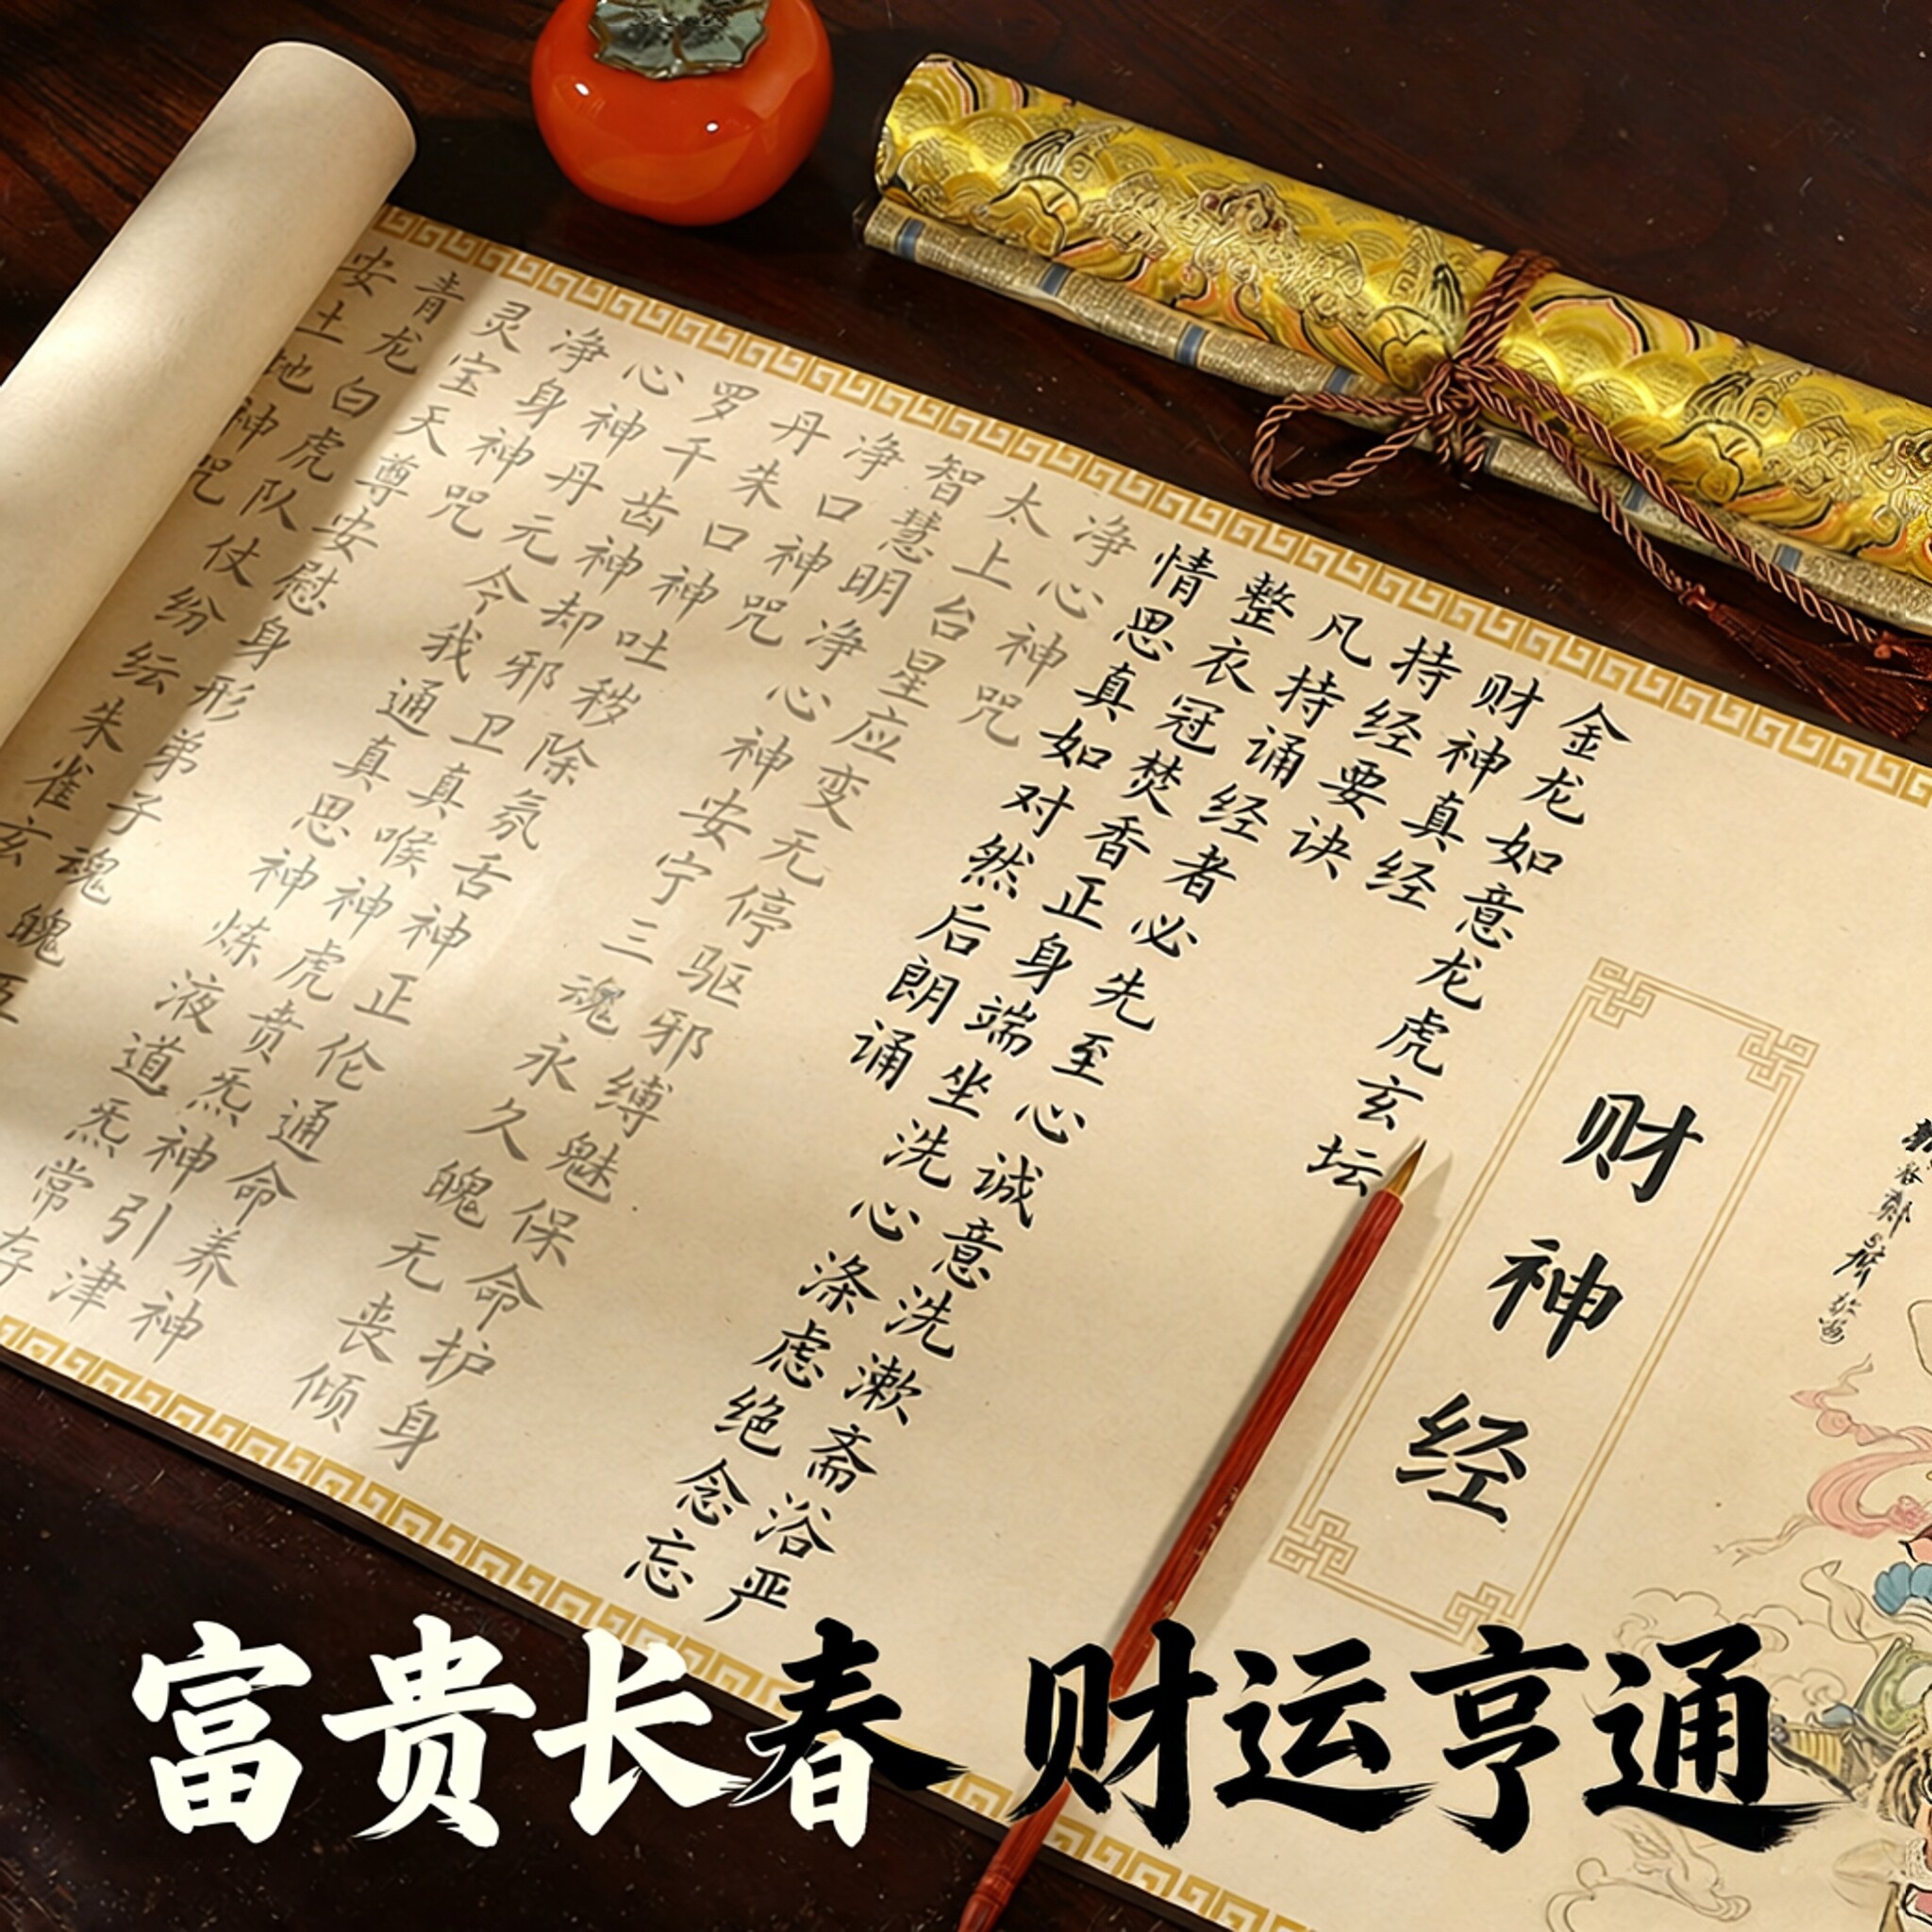 财神经
金龙如意龙虎玄坛
财神真经
持经要诀
凡持诵经者必先至心诚意洗漱斋浴严
整衣冠焚香正身端坐洗心涤虑绝念忘
情思真如对然后朗诵
净心神咒
太上台星应变无停驱邪缚魅保命护身
智慧明净心神安宁三魂永久魄无丧倾
净口神咒
丹朱口神吐秽除氛舌神正伦通命养神
罗千齿神却邪卫真喉神虎贲炁神引津
心神丹元令我通真思神炼液道炁常存
净身神咒
灵宝天尊安慰身形弟子魂魄五
青龙白虎队仗纷纭朱雀玄
安土地神咒
富贵长春 财运亨通